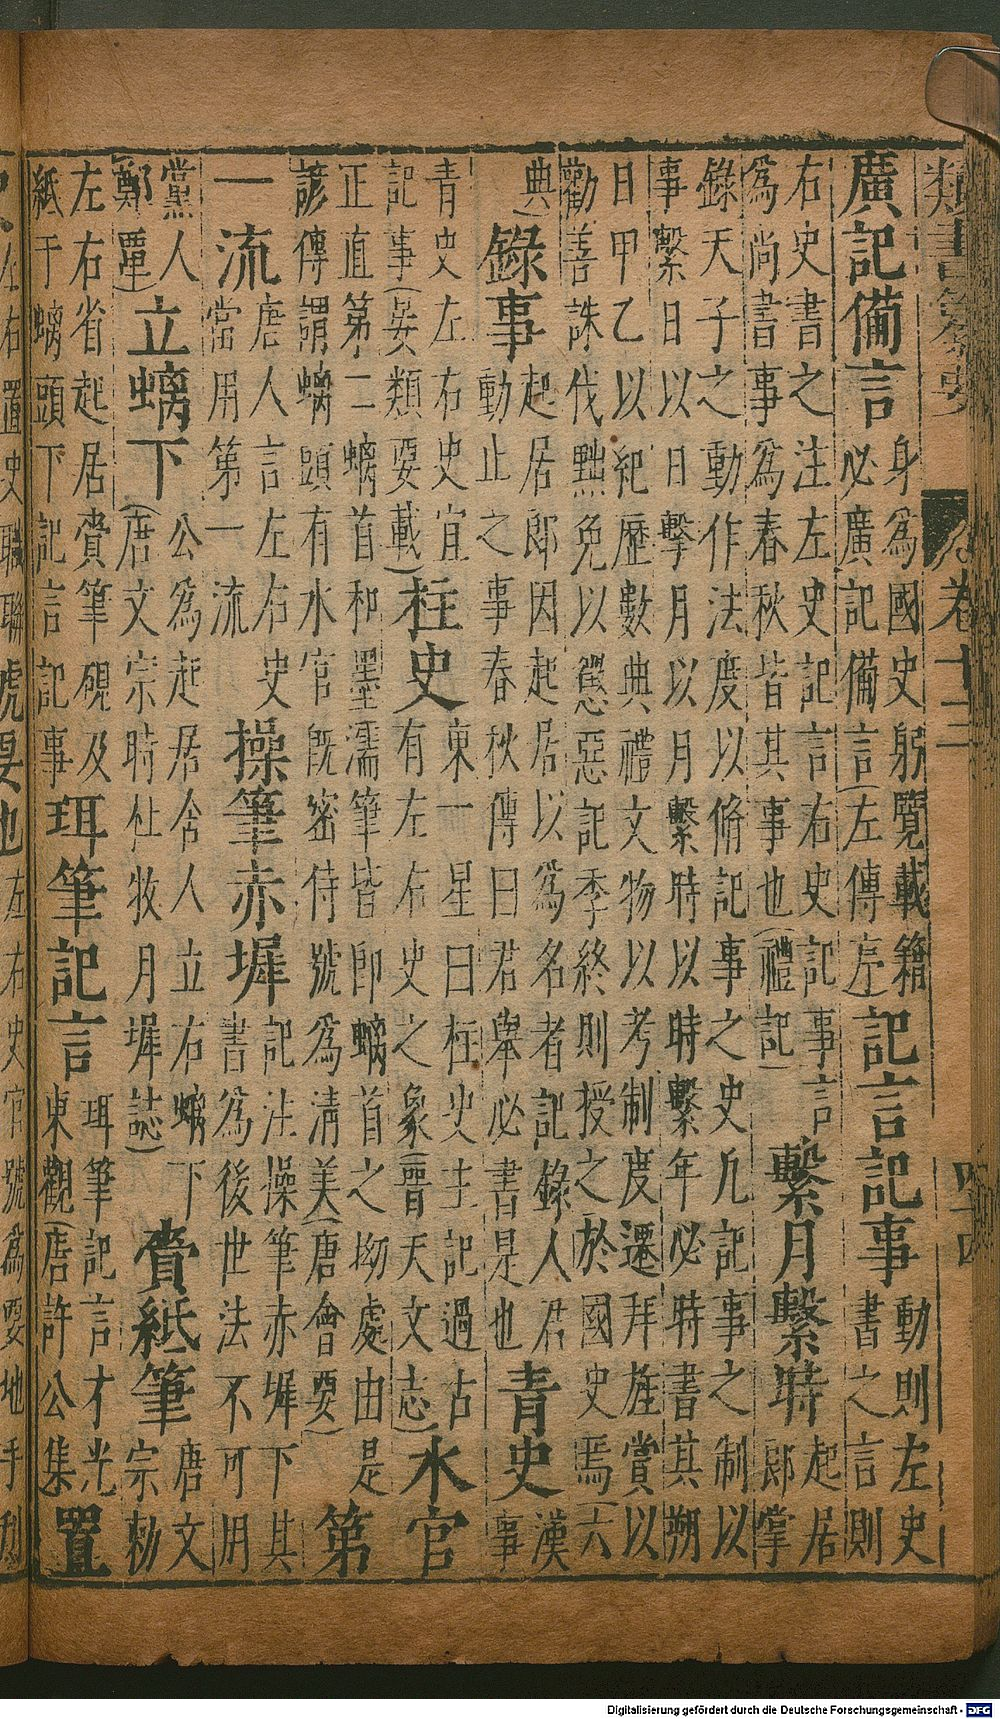 類書纂要 卷十二 四十四
廣記備言 身為國史躬覽載籍必廣記備言(左傳序) 記言記事 動則左史書之言則
右史書之注左史記言右史記事言為尚書事為春秋皆其事也(禮記) 繫月繫時 起居郎掌
錄天子之動作法度以脩記事之史凡記事之制以事繫日以日繫月以月繫時以時繫年必時書其朔
日甲乙以紀歷數典禮文物以考制度遷拜旌賞以勸善誅伐黜免以懲惡記季終則授之於國史焉(六
典) 錄事 起居郎因起居以為名者記錄人君動止之事春秋傳曰君舉必書是也 青史 漢事
青史左右史宜記事(晏類要載) 柱史 東一星曰柱史主記過古有左右史之象(晉天文志) 水官
正直第二螭首和墨濡筆皆即螭首之坳處由是諺傳謂螭頭有水官既密侍號為清美(唐會要) 第
一流 唐人言左右史當用第一流 操筆赤墀 記注操筆赤墀下其書為後世法不可用
黨人鄭覃) 立螭下 公為起居舍人立右螭下(唐文宗時杜牧月墀誌) 賫紙筆 唐文宗勑
左右省起居賫筆硯及紙于螭頭下記言記事 珥筆記言 珥筆記言才光東觀(唐許公集 置
左右置史職聯號要地 左右史官號為要地手
Digitalisierung gefördert durch die Deutsche Forschungsgemeinschaft - DFG